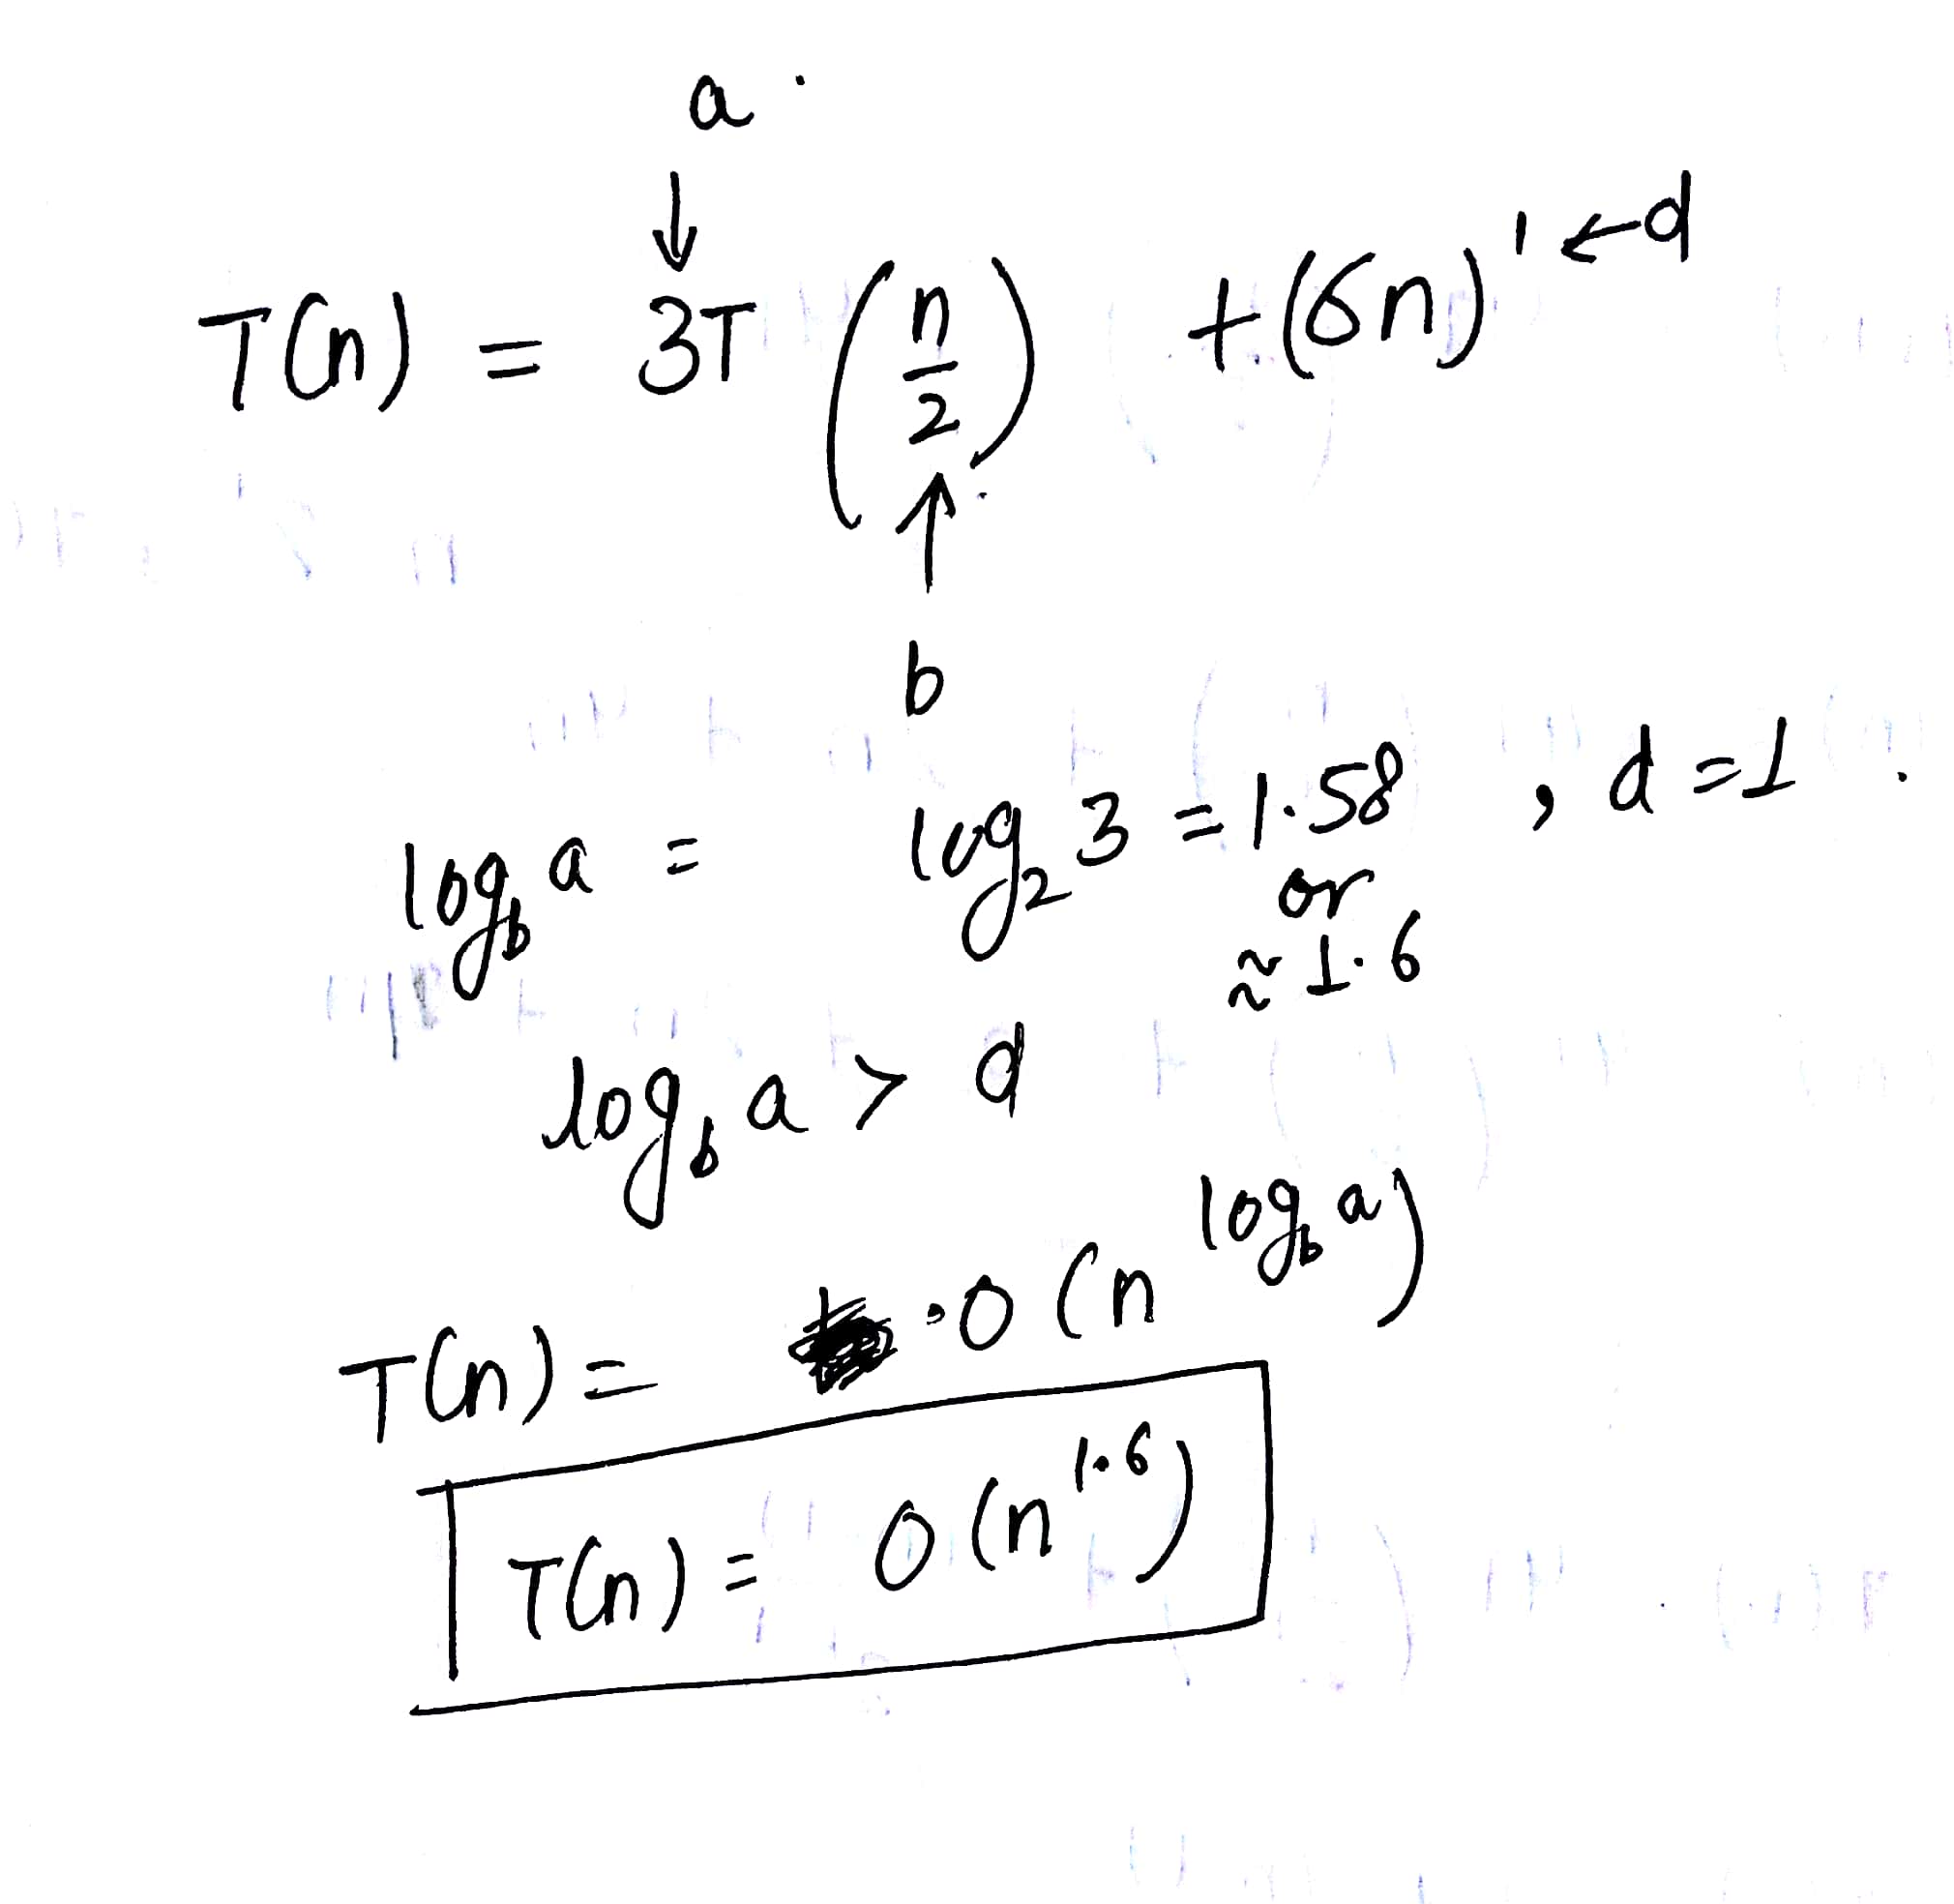 a
↓
T(n) = 3T (n/2) + (6n)¹ ← d
↑
b
log_b a = log_2 3 = 1.58 , d = 1
or
≈ 1.6
log_b a > d
T(n) = O(n^{log_b a})
T(n) = O(n^{1.6})